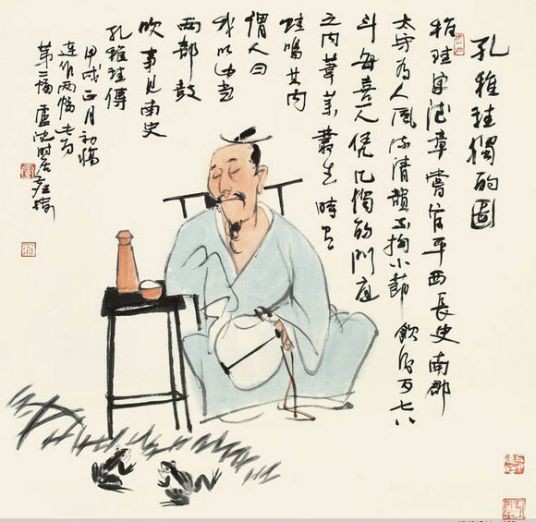 孔稚珪獨酌圖
稚珪字德璋嘗官平西長史南郡
太守為人風流清韻不拘小節飲酒七八
斗每喜一人凭几獨酌門庭
之内草莱叢生時有
蛙鳴其内
謂人曰
我以此當
两部鼓
吹事見南史
孔稚珪傳
甲戌正月初
連作两幅此为
第二幅盧沉